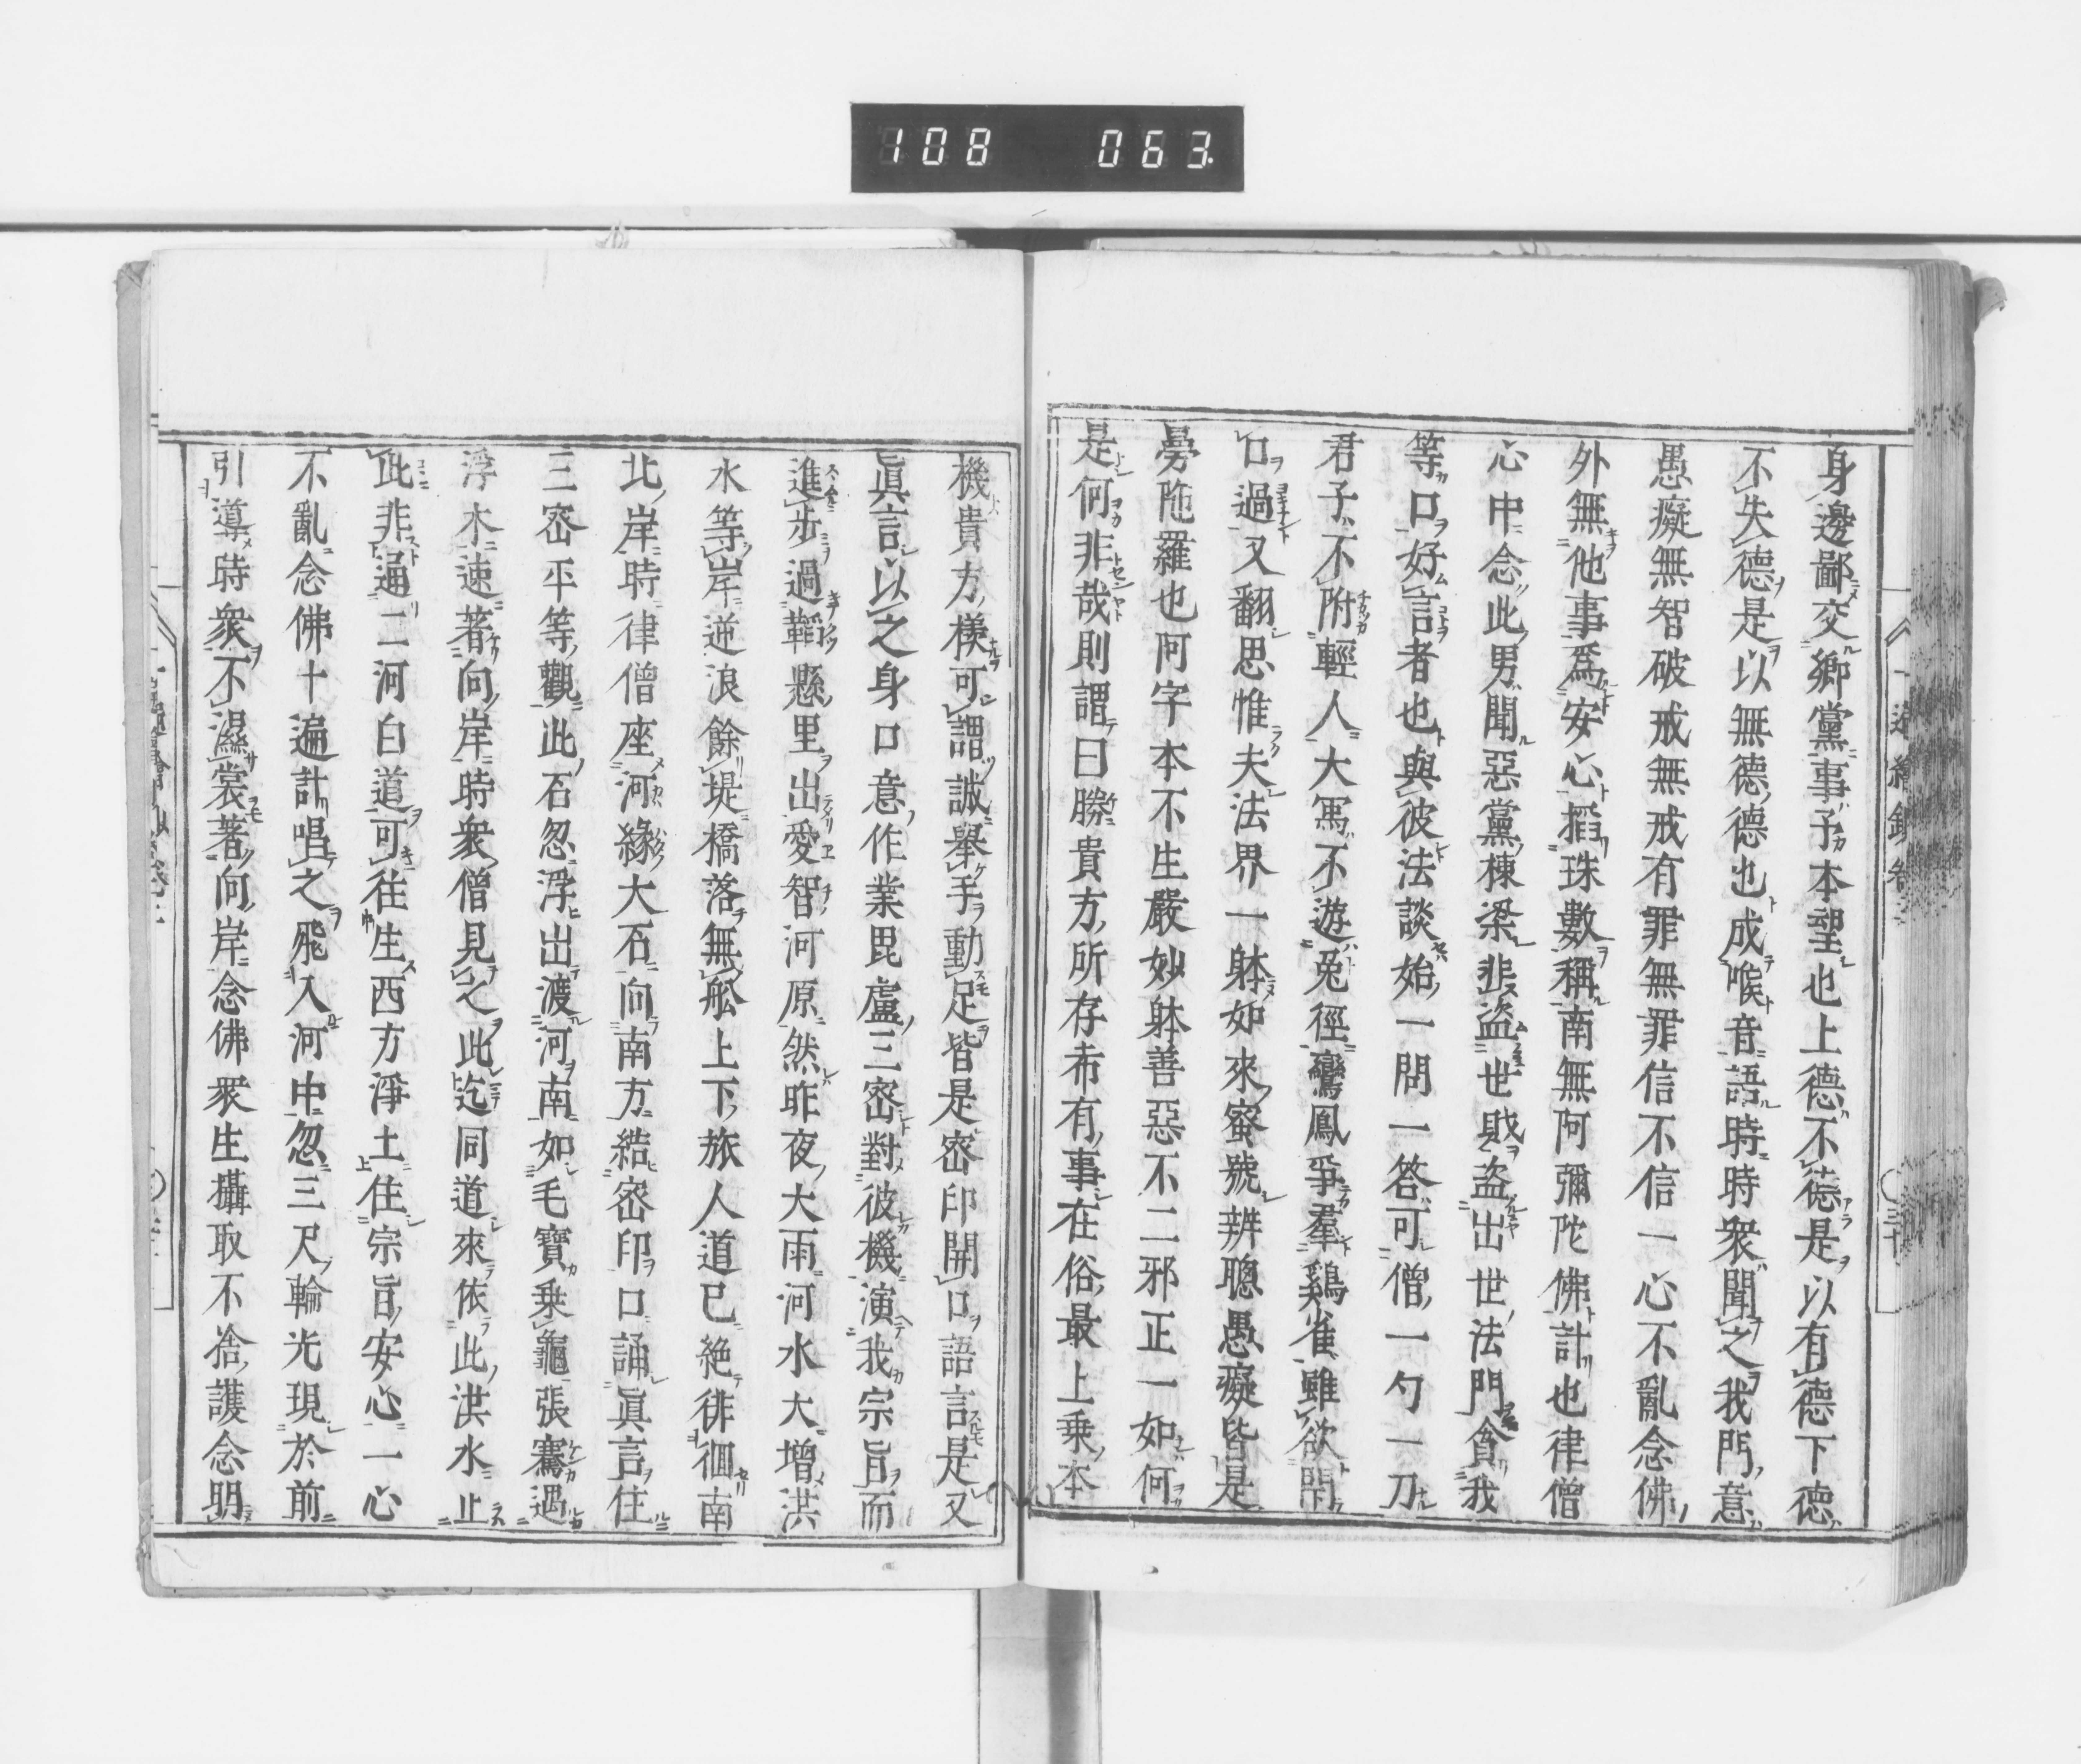 108 063
身邊鄙交鄉黨事子本望也上德不德是以有德下德
不失德是以無德德也成喉音語時時衆聞之我門意
愚癡無智破戒無戒有罪無罪信不信一心不亂念佛
外無他事爲安心搯珠數稱南無阿彌陀佛計也律僧
心中念此男聞惡黨棟梁非盗世賊盗出世法門貪我
等口好言者也與彼法談始一問一答可僧一勺一刀
君子不附輕人大駕不遊兎徑鸞鳳爭羣鷄雀雖欲閇
口過又翻思惟夫法界一躰如來蜜號辨聰愚癡皆是
曼陁羅也阿字本不生嚴妙躰善惡不二邪正一如何
是何非哉則謂曰勝貴方所存希有事在俗最上乗本
機貴方様可謂誠舉手動足皆是密印開口語言是又
眞言以之身口意作業毘盧三密對彼機演我宗旨而
進歩過鞱懸里出愛智河原然昨夜大雨河水大增洪
水等岸逆浪餘堤橋落無舩上下旅人道已絶徘徊南
北岸時律僧座河緣大石向南方結密印口誦眞言住
三密平等觀此石忽浮出渡河南如毛寶乗龜張騫遇
浮木速著向岸時衆僧見之此迄同道來依此洪水止
此非通二河白道可往生西方淨土住宗旨安心一心
不亂念佛十遍計唱之飛入河中忽三尺輪光現於前
引導時衆不濕裳著向岸念佛衆生攝取不捨護念明